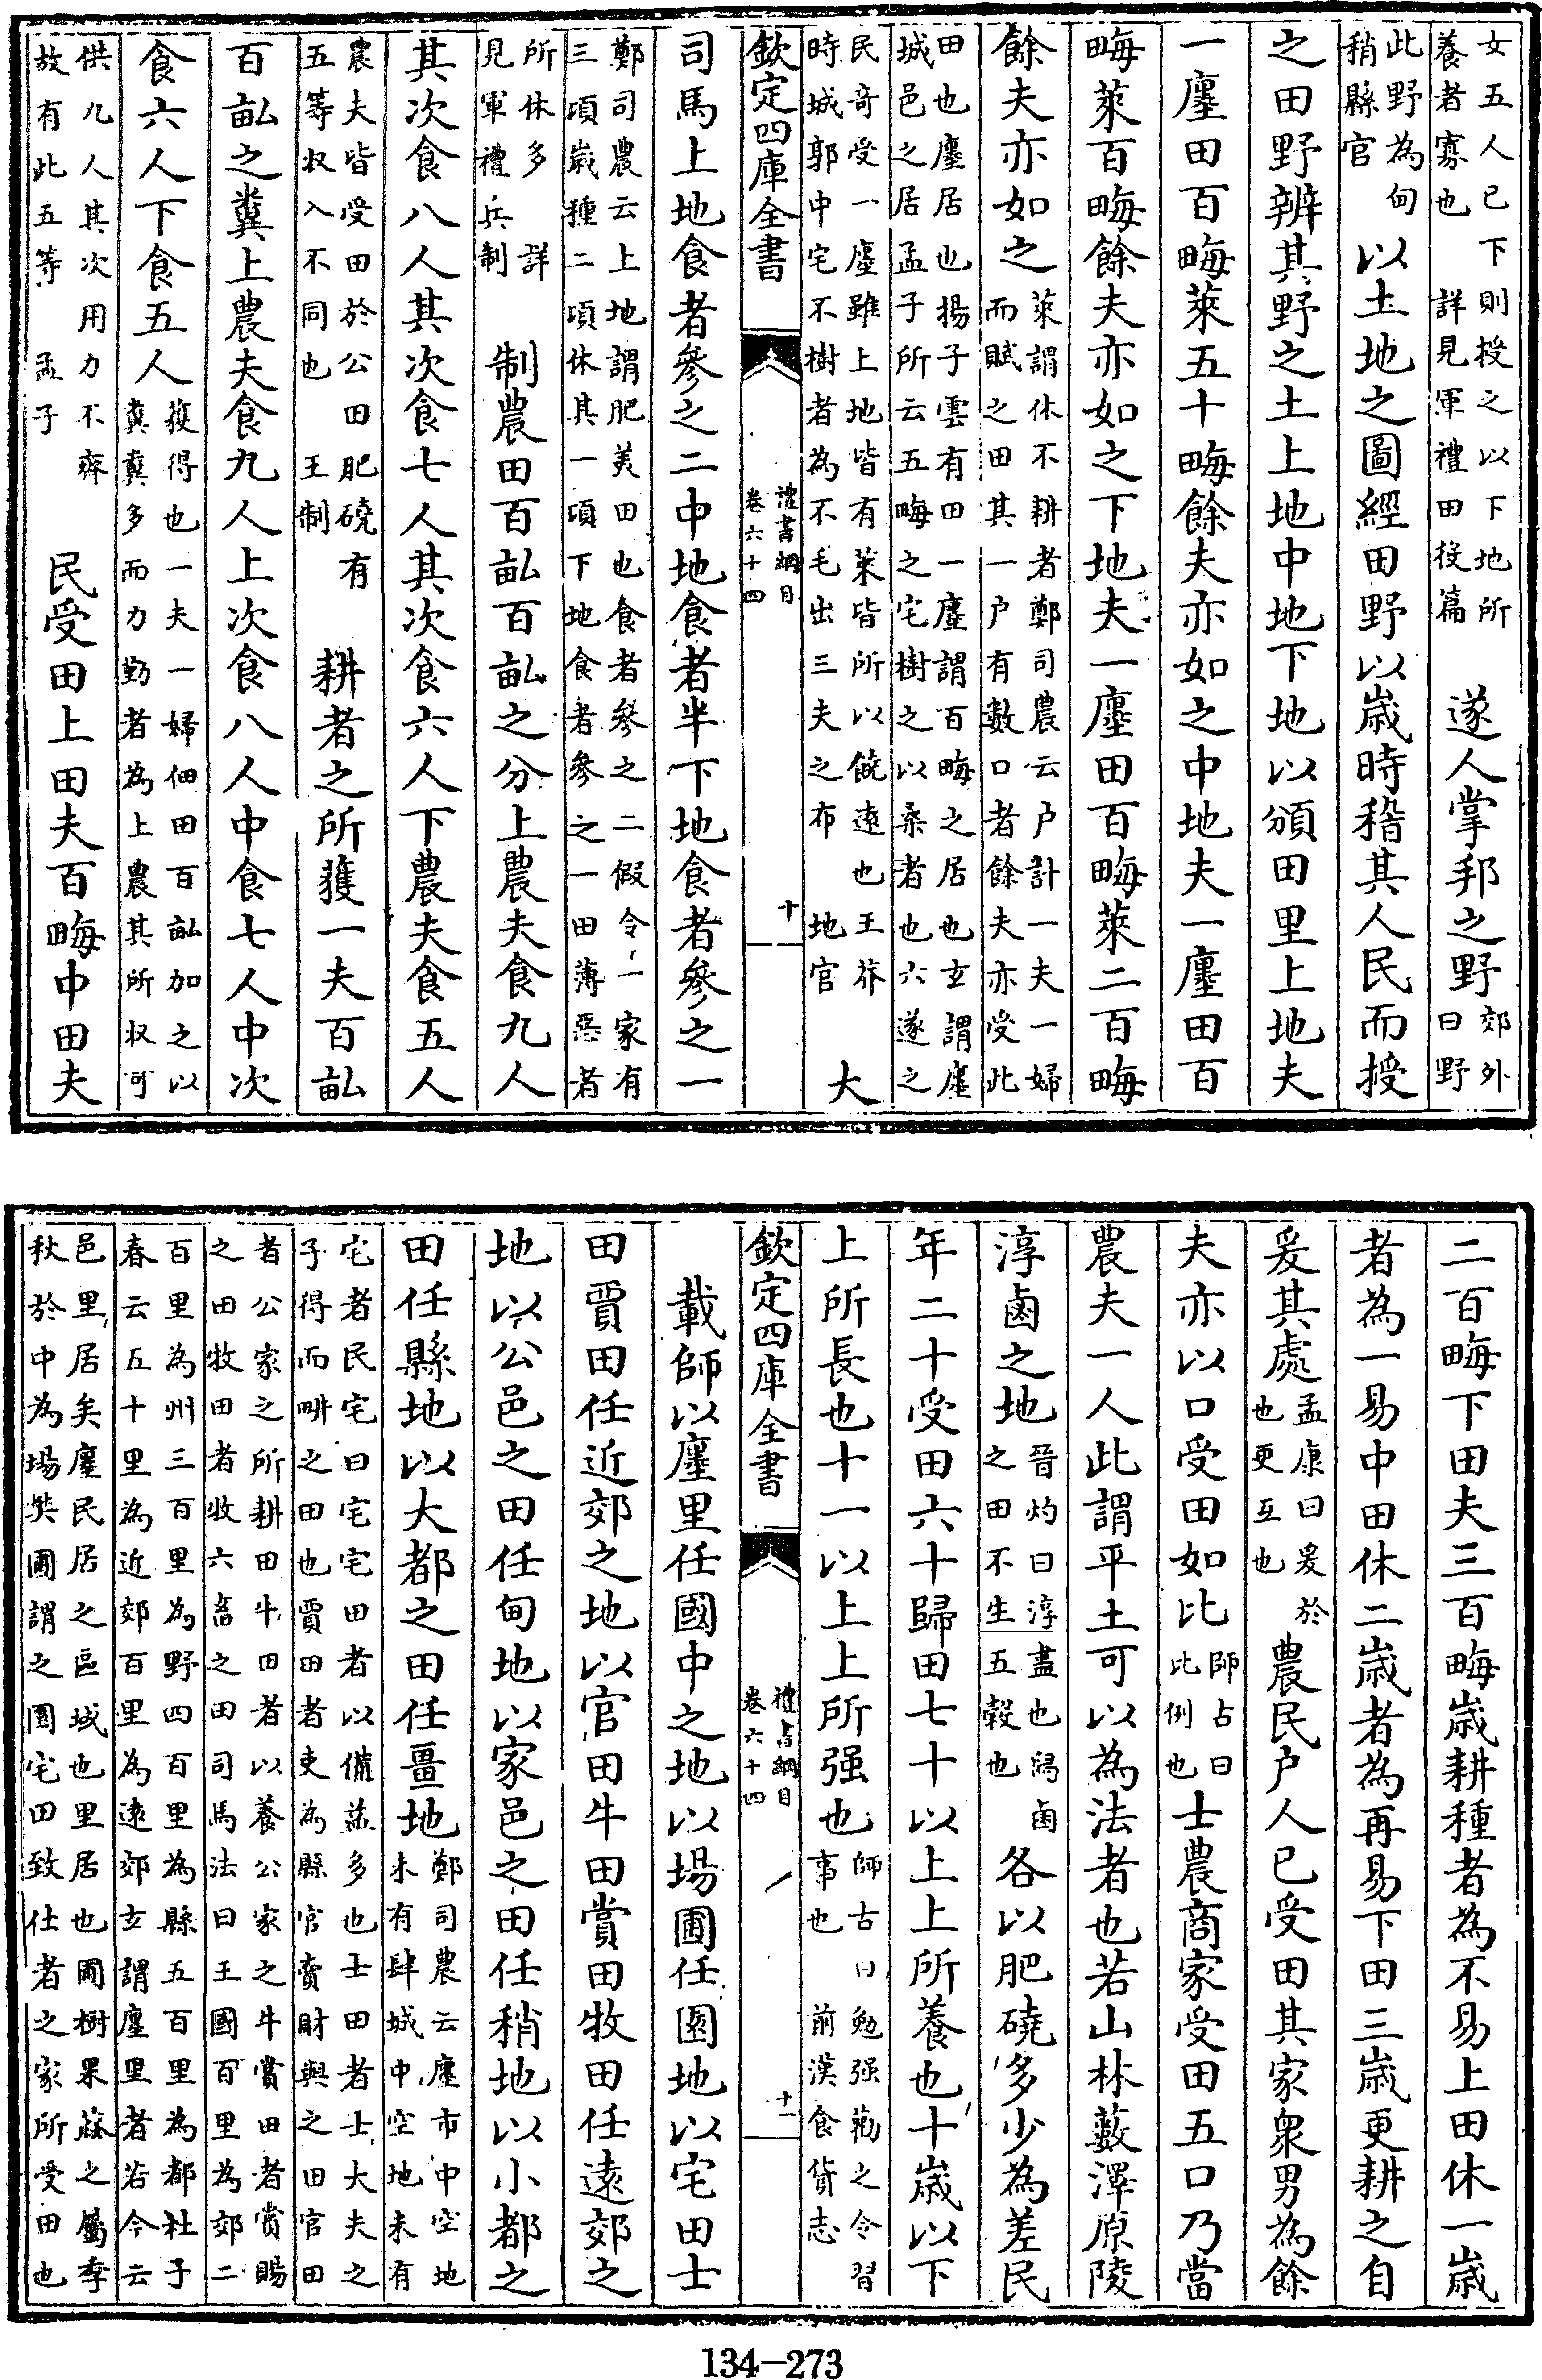 女五人已下則授之以下地所養者寡也 詳見軍禮田役篇 遂人掌邦之野郊外曰野
此野為甸稍縣官 以土地之圖經田野以嵗時稽其人民而授
之田野辨其野之土上地中地下地以頒田里上地夫
一廛田百畮萊五十畮餘夫亦如之中地夫一廛田百
畮萊百畮餘夫亦如之下地夫一廛田百畮萊二百畮
餘夫亦如之萊謂休不耕者鄭司農云户計一夫一婦而賦之田其一户有數口者餘夫亦受此
田也廛居也揚子雲有田一廛謂百畮之居也玄謂廛城邑之居孟子所云五畮之宅樹之以桑者也六遂之
民奇受一廛雖上地皆有萊皆所以饒逺也王莽時城郭中宅不樹者為不毛出三夫之布 地官 大
欽定四庫全書 禮書綱目卷六十四 十
司馬上地食者參之二中地食者半下地食者參之一
鄭司農云上地謂肥美田也食者參之二假令一家有三頃嵗種二頃休其一頃下地食者參之一田薄惡者
所休多 詳見軍禮兵制 制農田百畝百畝之分上農夫食九人
其次食八人其次食七人其次食六人下農夫食五人
農夫皆受田於公田肥磽有五等収入不同也 王制 耕者之所獲一夫百畝
百畝之糞上農夫食九人上次食八人中食七人中次
食六人下食五人獲得也一夫一婦佃田百畝加之以糞糞多而力勤者為上農其所収可
供九人其次用力不齊故有此五等 孟子 民受田上田夫百畮中田夫
二百畮下田夫三百畮嵗耕種者為不易上田休一嵗
者為一易中田休二嵗者為再易下田三嵗更耕之自
爰其處孟康曰爰於也更互也 農民户人已受田其家衆男為餘
夫亦以口受田如比師古曰比例也 士農商家受田五口乃當
農夫一人此謂平土可以為法者也若山林藪澤原陵
淳鹵之地晉灼曰淳盡也舄鹵之田不生五穀也 各以肥磽多少為差民
年二十受田六十歸田七十以上上所養也十嵗以下
上所長也十一以上上所强也師古曰勉强勸之令習事也 前漢食貨志
欽定四庫全書 禮書綱目卷六十四 十一
載師以廛里任國中之地以場圃任園地以宅田士
田賈田任近郊之地以官田牛田賞田牧田任逺郊之
地以公邑之田任甸地以家邑之田任稍地以小都之
田任縣地以大都之田任畺地鄭司農云廛市中空地未有肆城中空地未有
宅者民宅曰宅宅田者以備益多也士田者士大夫之子得而畊之田也賈田者吏為縣官賣財與之田官田
者公家之所耕田牛田者以養公家之牛賞田者賞賜之田牧田者牧六畜之田司馬法曰王國百里為郊二
百里為州三百里為野四百里為縣五百里為都杜子春云五十里為近郊百里為逺郊玄謂廛里者若今云
邑里居矣廛民居之區域也里居也圃樹果蓏之屬季秋於中為場樊圃謂之園宅田致仕者之家所受田也
134-273